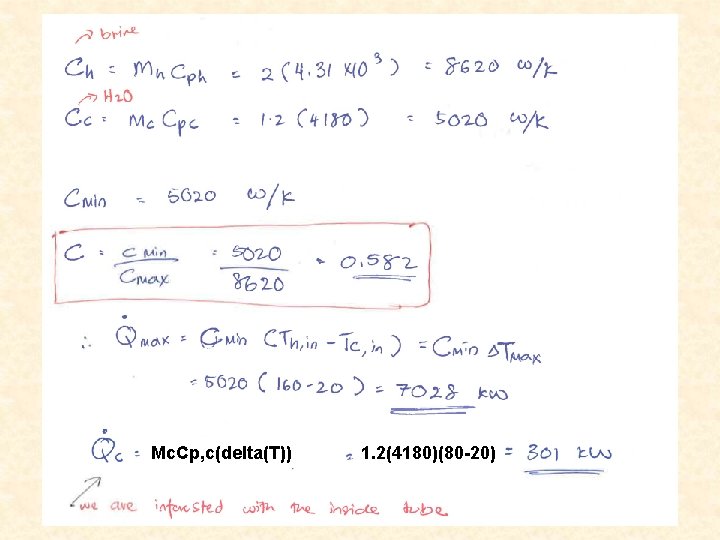 → brine
Ch = Mh Cph = 2(4.31 x10³) = 8620 w/k
→ H2O
Cc = Mc Cpc = 1.2(4180) = 5020 w/K
CMin = 5020 w/K
C = CMin/CMax = 5020/8620 = 0.582
∴ Q̇Max = CMin (Th,in - Tc,in) = CMin ΔTMax
= 5020 (160-20) = 7028 kW
Q̇c = Mc.Cp,c(delta(T)) = 1.2(4180)(80-20) = 301 kW
we are interested with the inside tube